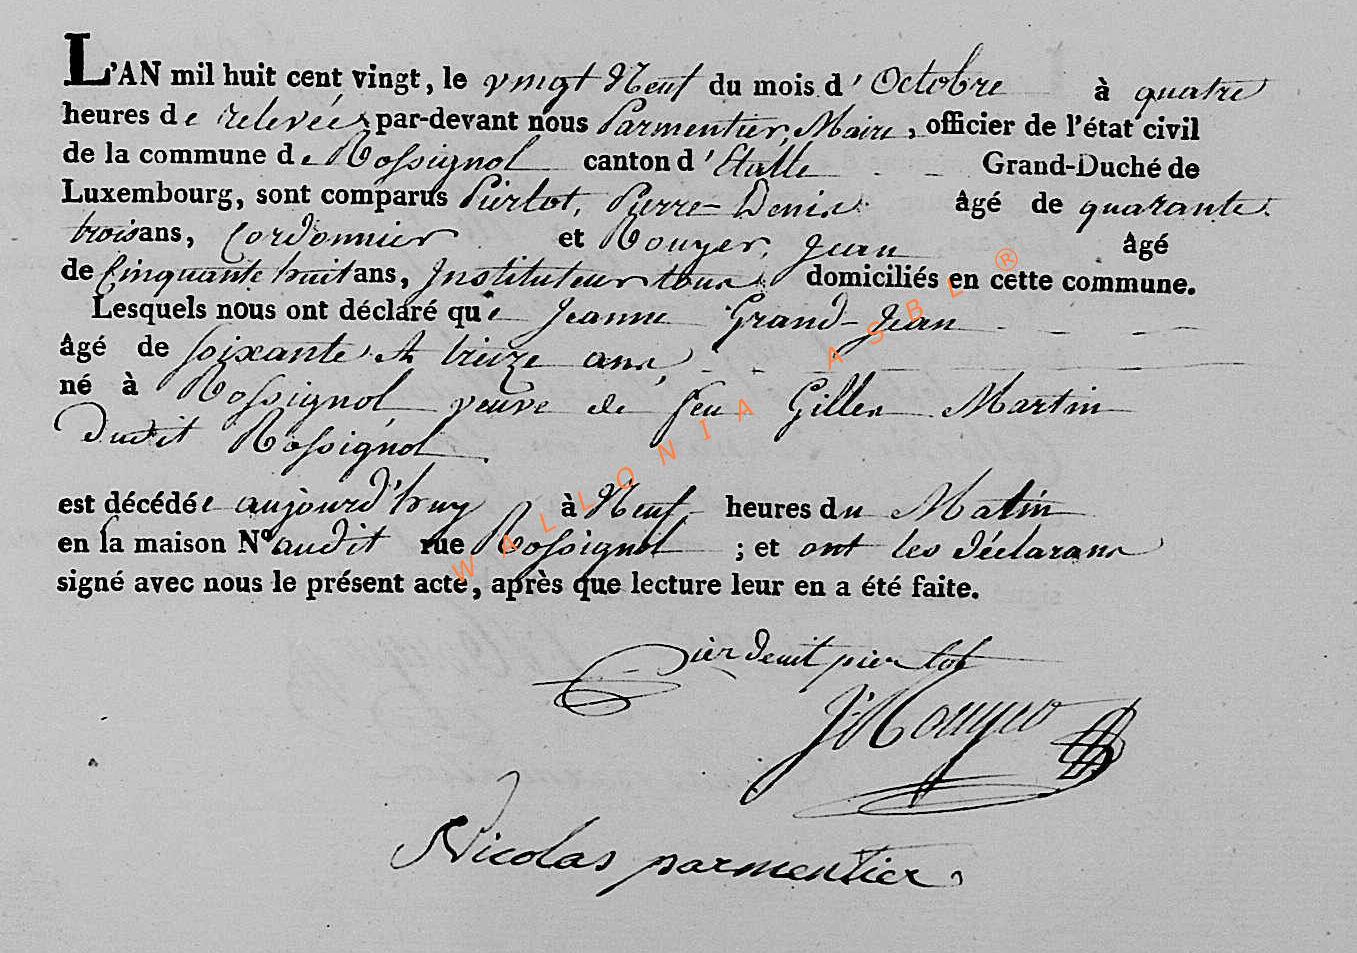 L'AN mil huit cent vingt, le vingt Neuf du mois d'Octobre à quatre
heures de relevée, par-devant nous Parmentier, Maire, officier de l'état civil
de la commune de Rossignol canton d'Etalle Grand-Duché de
Luxembourg, sont comparus Pierlot, Pierre-Denis âgé de quarante
trois ans, Cordonnier et Rouyer, Jean âgé
de Cinquante huit ans, Instituteur tous domiciliés en cette commune.
Lesquels nous ont déclaré que Jeanne Grand-Jean
âgé de soixante et treize ans,
né à Rossignol veuve de feu Gilles Martin
dudit Rossignol
est décédée aujourd'huy à Neuf heures du Matin
en la maison N° audit rue Rossignol ; et ont les déclarans
signé avec nous le présent acte, après que lecture leur en a été faite.
pier denit pierlot
J Rouyer
Nicolas parmentier
WALLONIA ASBL ®